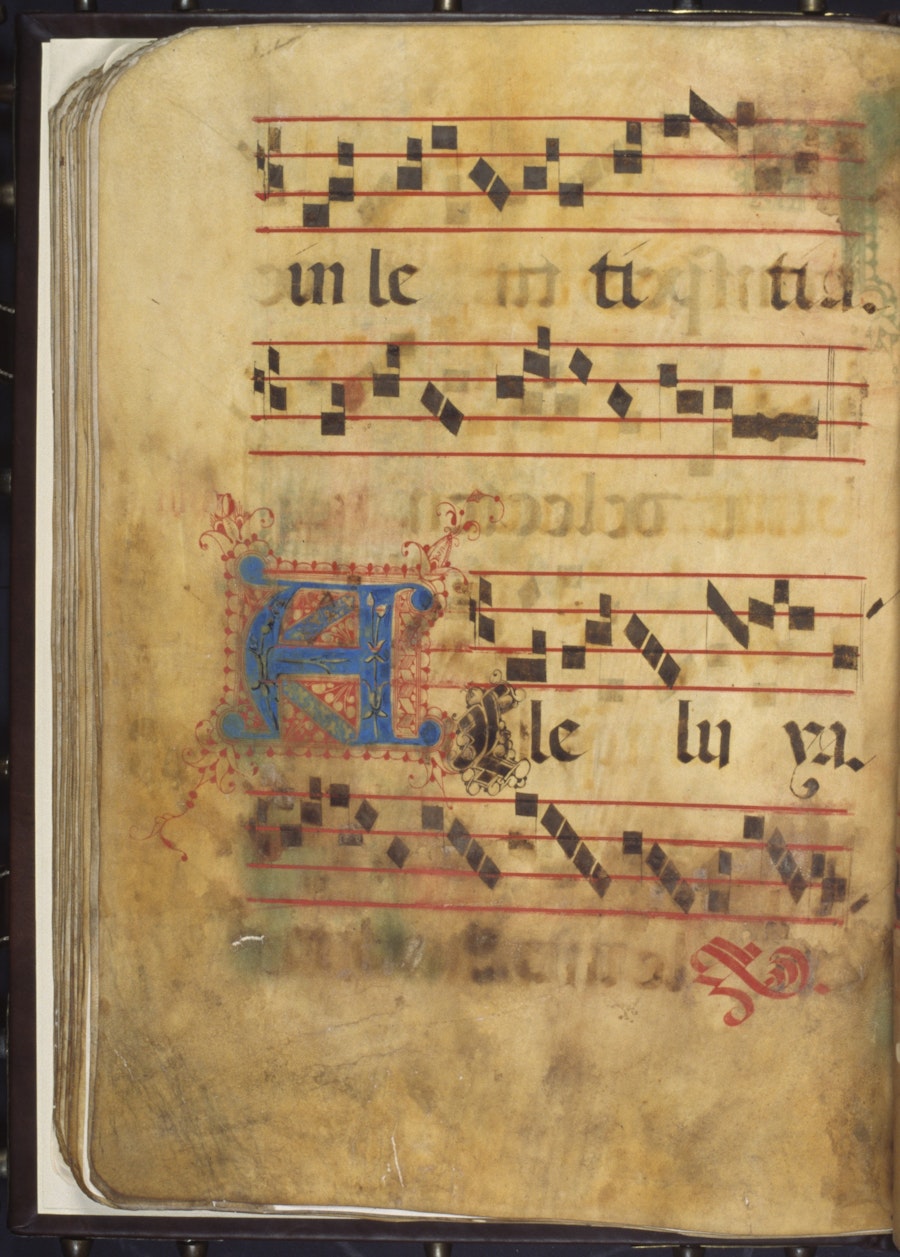 in le ti tia.
A l le lu ya.
℣.